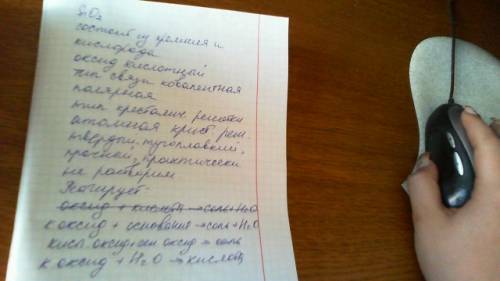 SiO₂
состоит из кремния и
кислорода
оксид кислотный
тип связи ковалентная
полярная
тип кресталич. решетки
атомная крист. реш.
твердый, тугоплавкий,
прочный, практически
не растворим
Реагирует:
оксид + кислота → соль + H₂O
к оксид + основание → соль + H₂O
кисл. оксид + осн оксид → соль
к оксид + H₂O → кислота